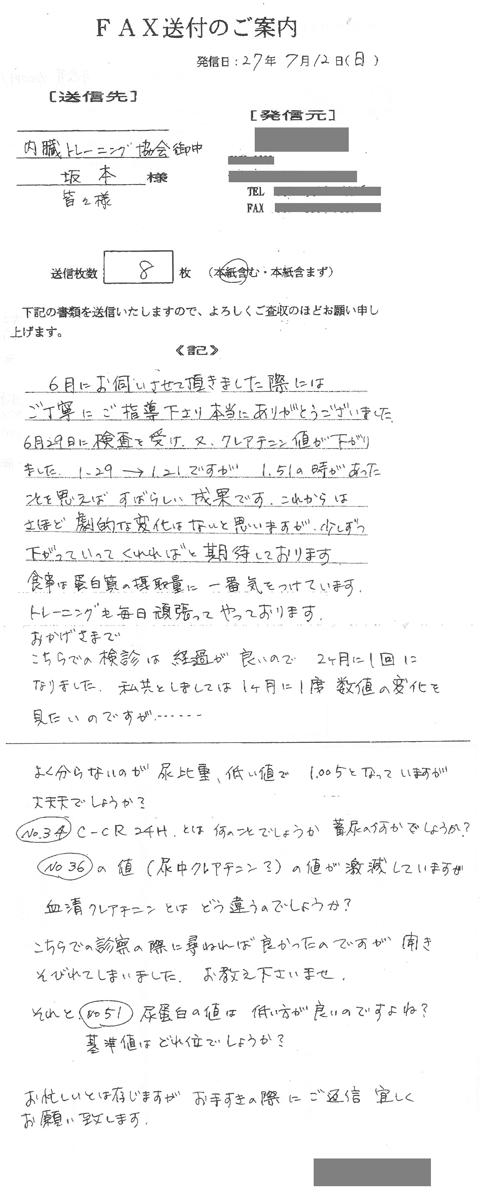 FAX送付のご案内
発信日:27年7月12日(日)
[送信先]
[発信元]
内臓トレーニング協会御中
坂本 様
皆々様
TEL
FAX
送信枚数 8 枚 (本紙含む・本紙含まず)
下記の書類を送信いたしますので、よろしくご査収のほどお願い申し
上げます。
《記》
6月にお伺いさせて頂きました際には
ご丁寧にご指導下さり本当にありがとうございました
6月29日に検査を受け、又、クレアチニン値が下がり
ました。1.29→1.21ですが 1.51の時があった
ことを思えばすばらしい成果です。これからは
さほど劇的な変化はないと思いますが、少しずつ
下がっていってくれればと期待しております
食事は蛋白質の摂取量に一番気をつけています。
トレーニングも毎日頑張ってやっております。
おかげさまで
こちらでの検診は経過が良いので 2ヶ月に1回に
なりました。私共としましては1ヶ月に1度数値の変化を
見たいのですが……
よく分らないのが尿比重、低い値で 1.005となっていますが
大丈夫でしょうか?
No.34 C-CR 24H.とは何のことでしょうか 蓄尿の何かでしょうか?
No36の値(尿中クレアチニン?)の値が激減していますが
血清クレアチニンとはどう違うのでしょうか?
こちらでの診察の際に尋ねれば良かったのですが 聞き
そびれてしまいました。お教え下さいませ。
それと、No51 尿蛋白の値は低い方が良いのですよね?
基準値はどれ位でしょうか?
お忙しいとは存じますがお手すきの際にご返信宜しく
お願い致します。